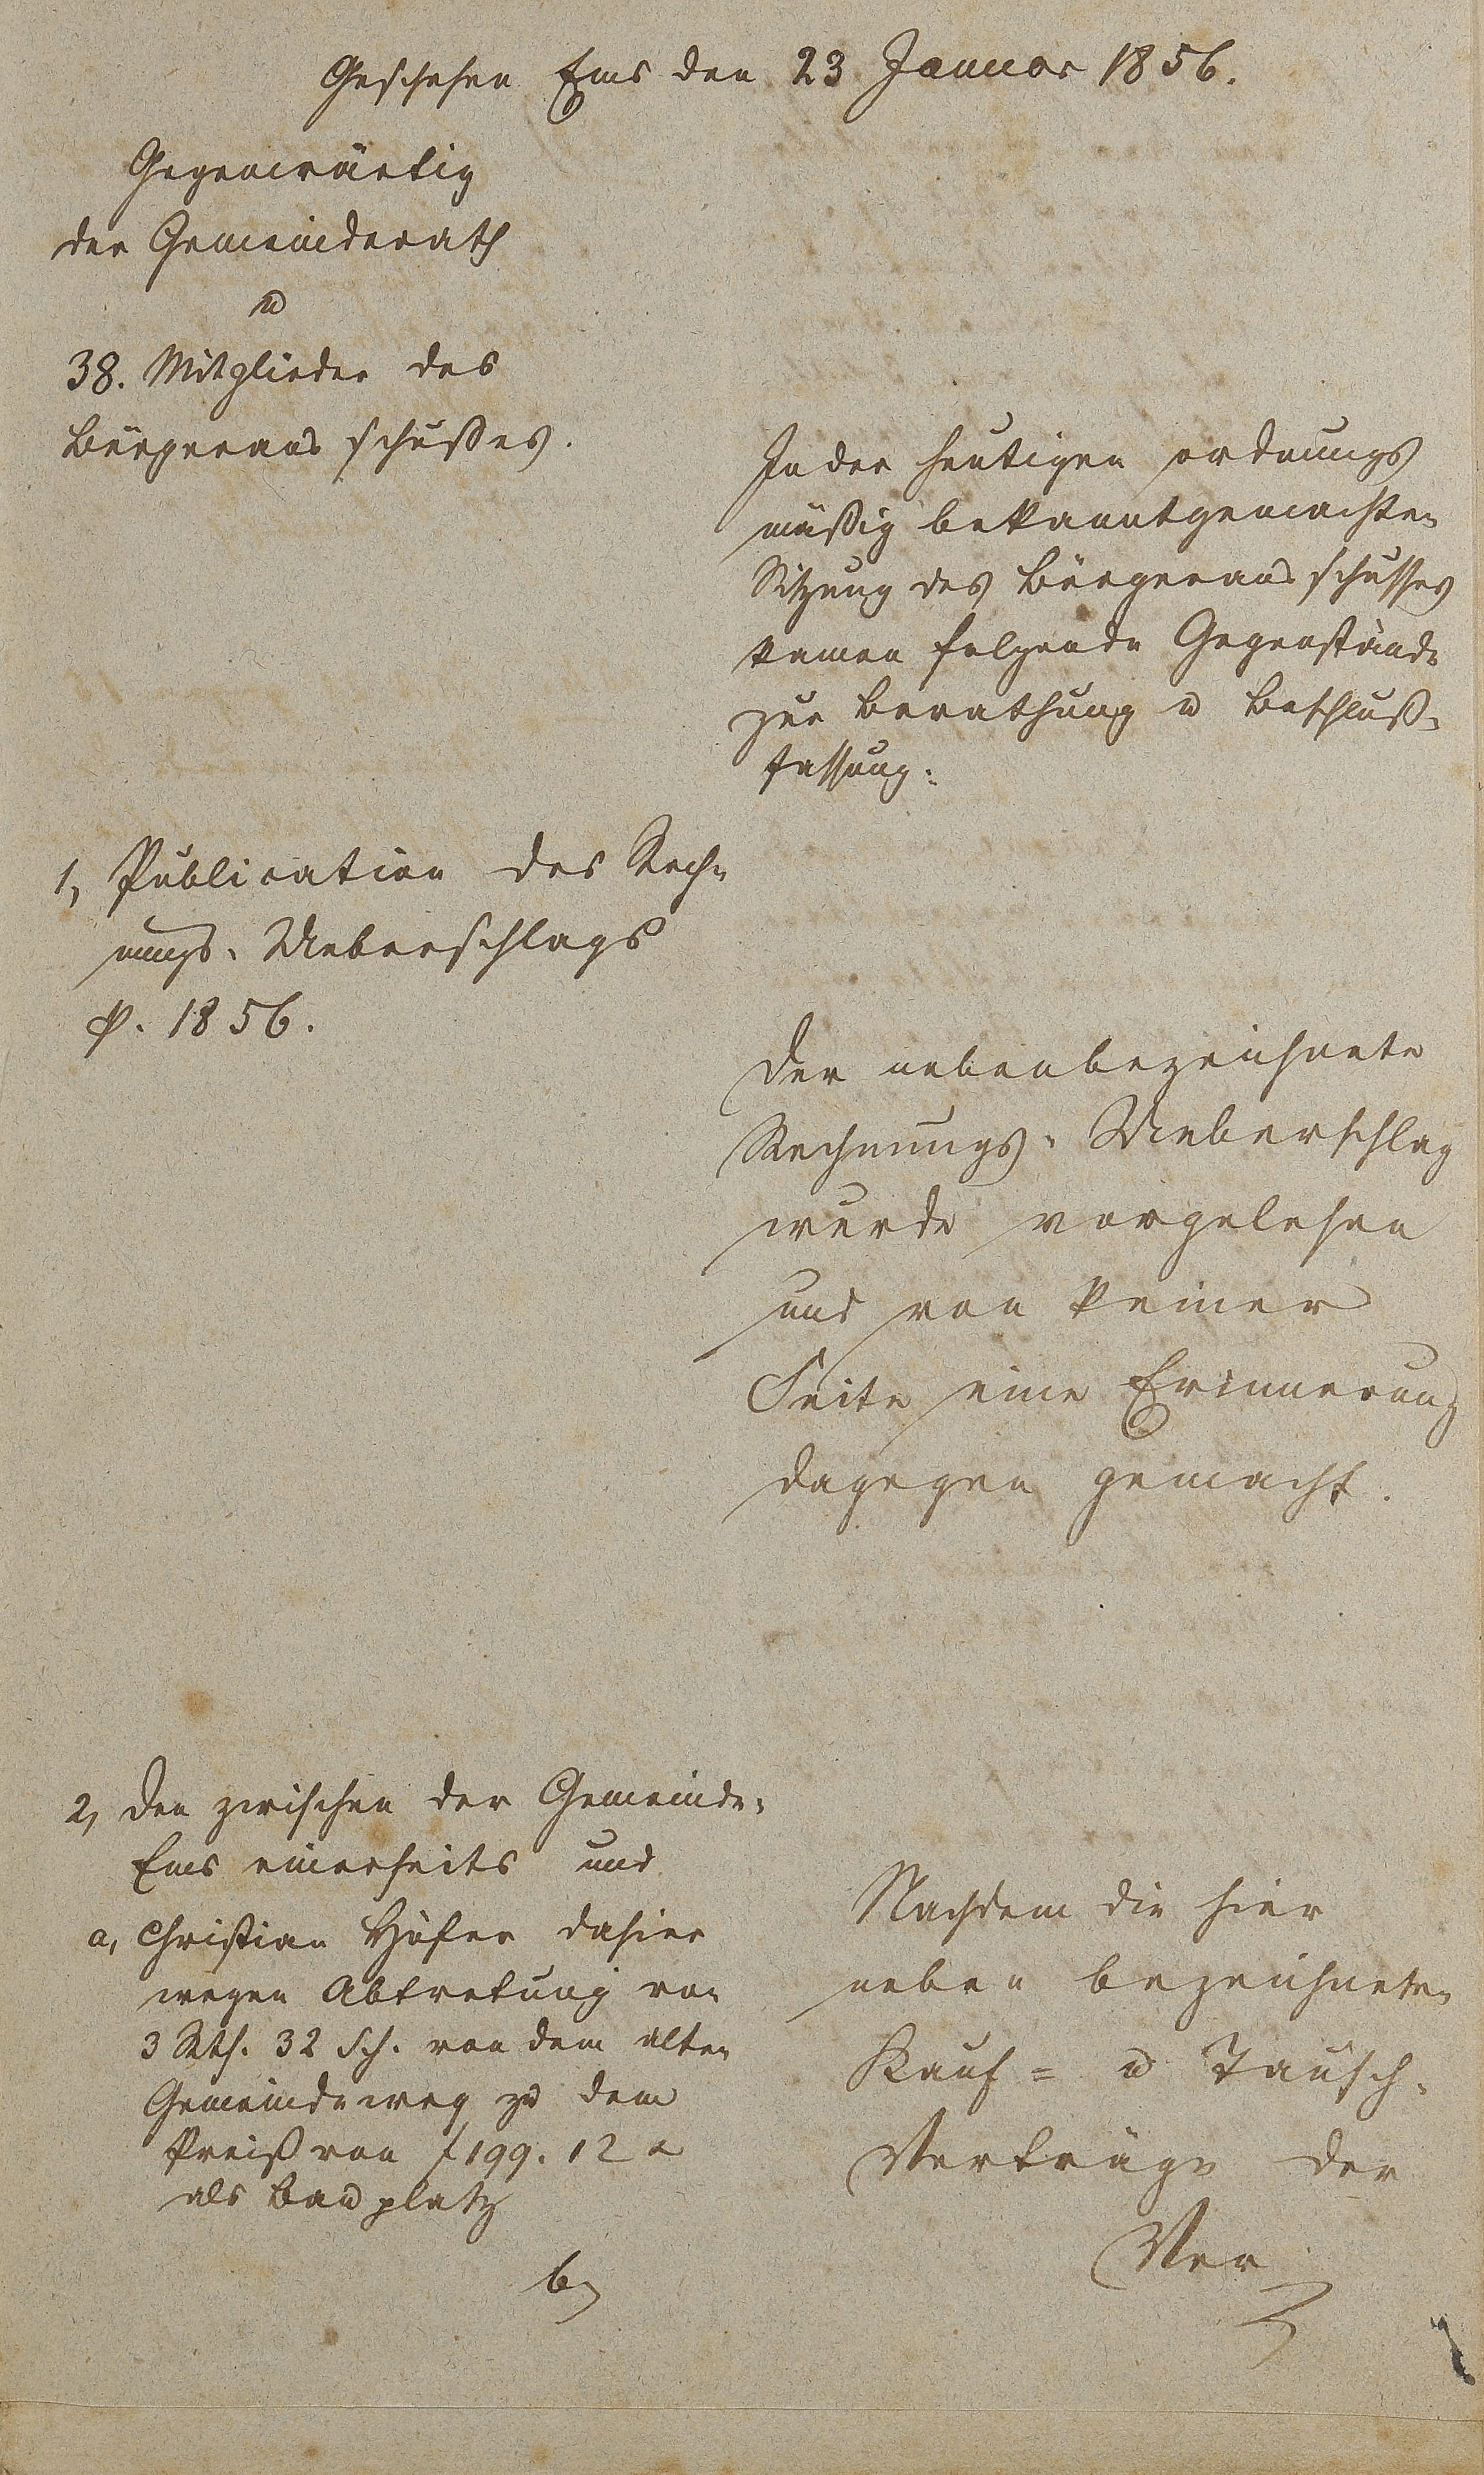 Geschehen Ems den 23 Januar 1856.
Gegenwärtig
der Gemeinderath
u
38. Mitglieder des
Bürgeraus schußes.
In der heutigen ordnungs
mäßig bekanntgemachten
Sitzung des Bürgeraus schusses
kamen folgende Gegenstände
zur Berathung u Beschluß-
fassung:
1, Publication des Rech-
nungs-Ueberschlags
p. 1856.
Der nebenbezeichnete
Rechnungs-Ueberschlag
wurde vorgelesen
und von keiner
Seite eine Erinnerung
dagegen gemacht.
2, Den zwischen der Gemeinde-
Ems einerseits und
a, Christian Höfer dahier
wegen Abtretung von
3 Rth. 32 Sch. von dem alten
Gemeindeweg zu dem
Preiß von f 199. 12
als Bauplatz
b,
Nachdem die hier
neben bezeichneten
Kauf= u Tausch-
Verträge der
Ver